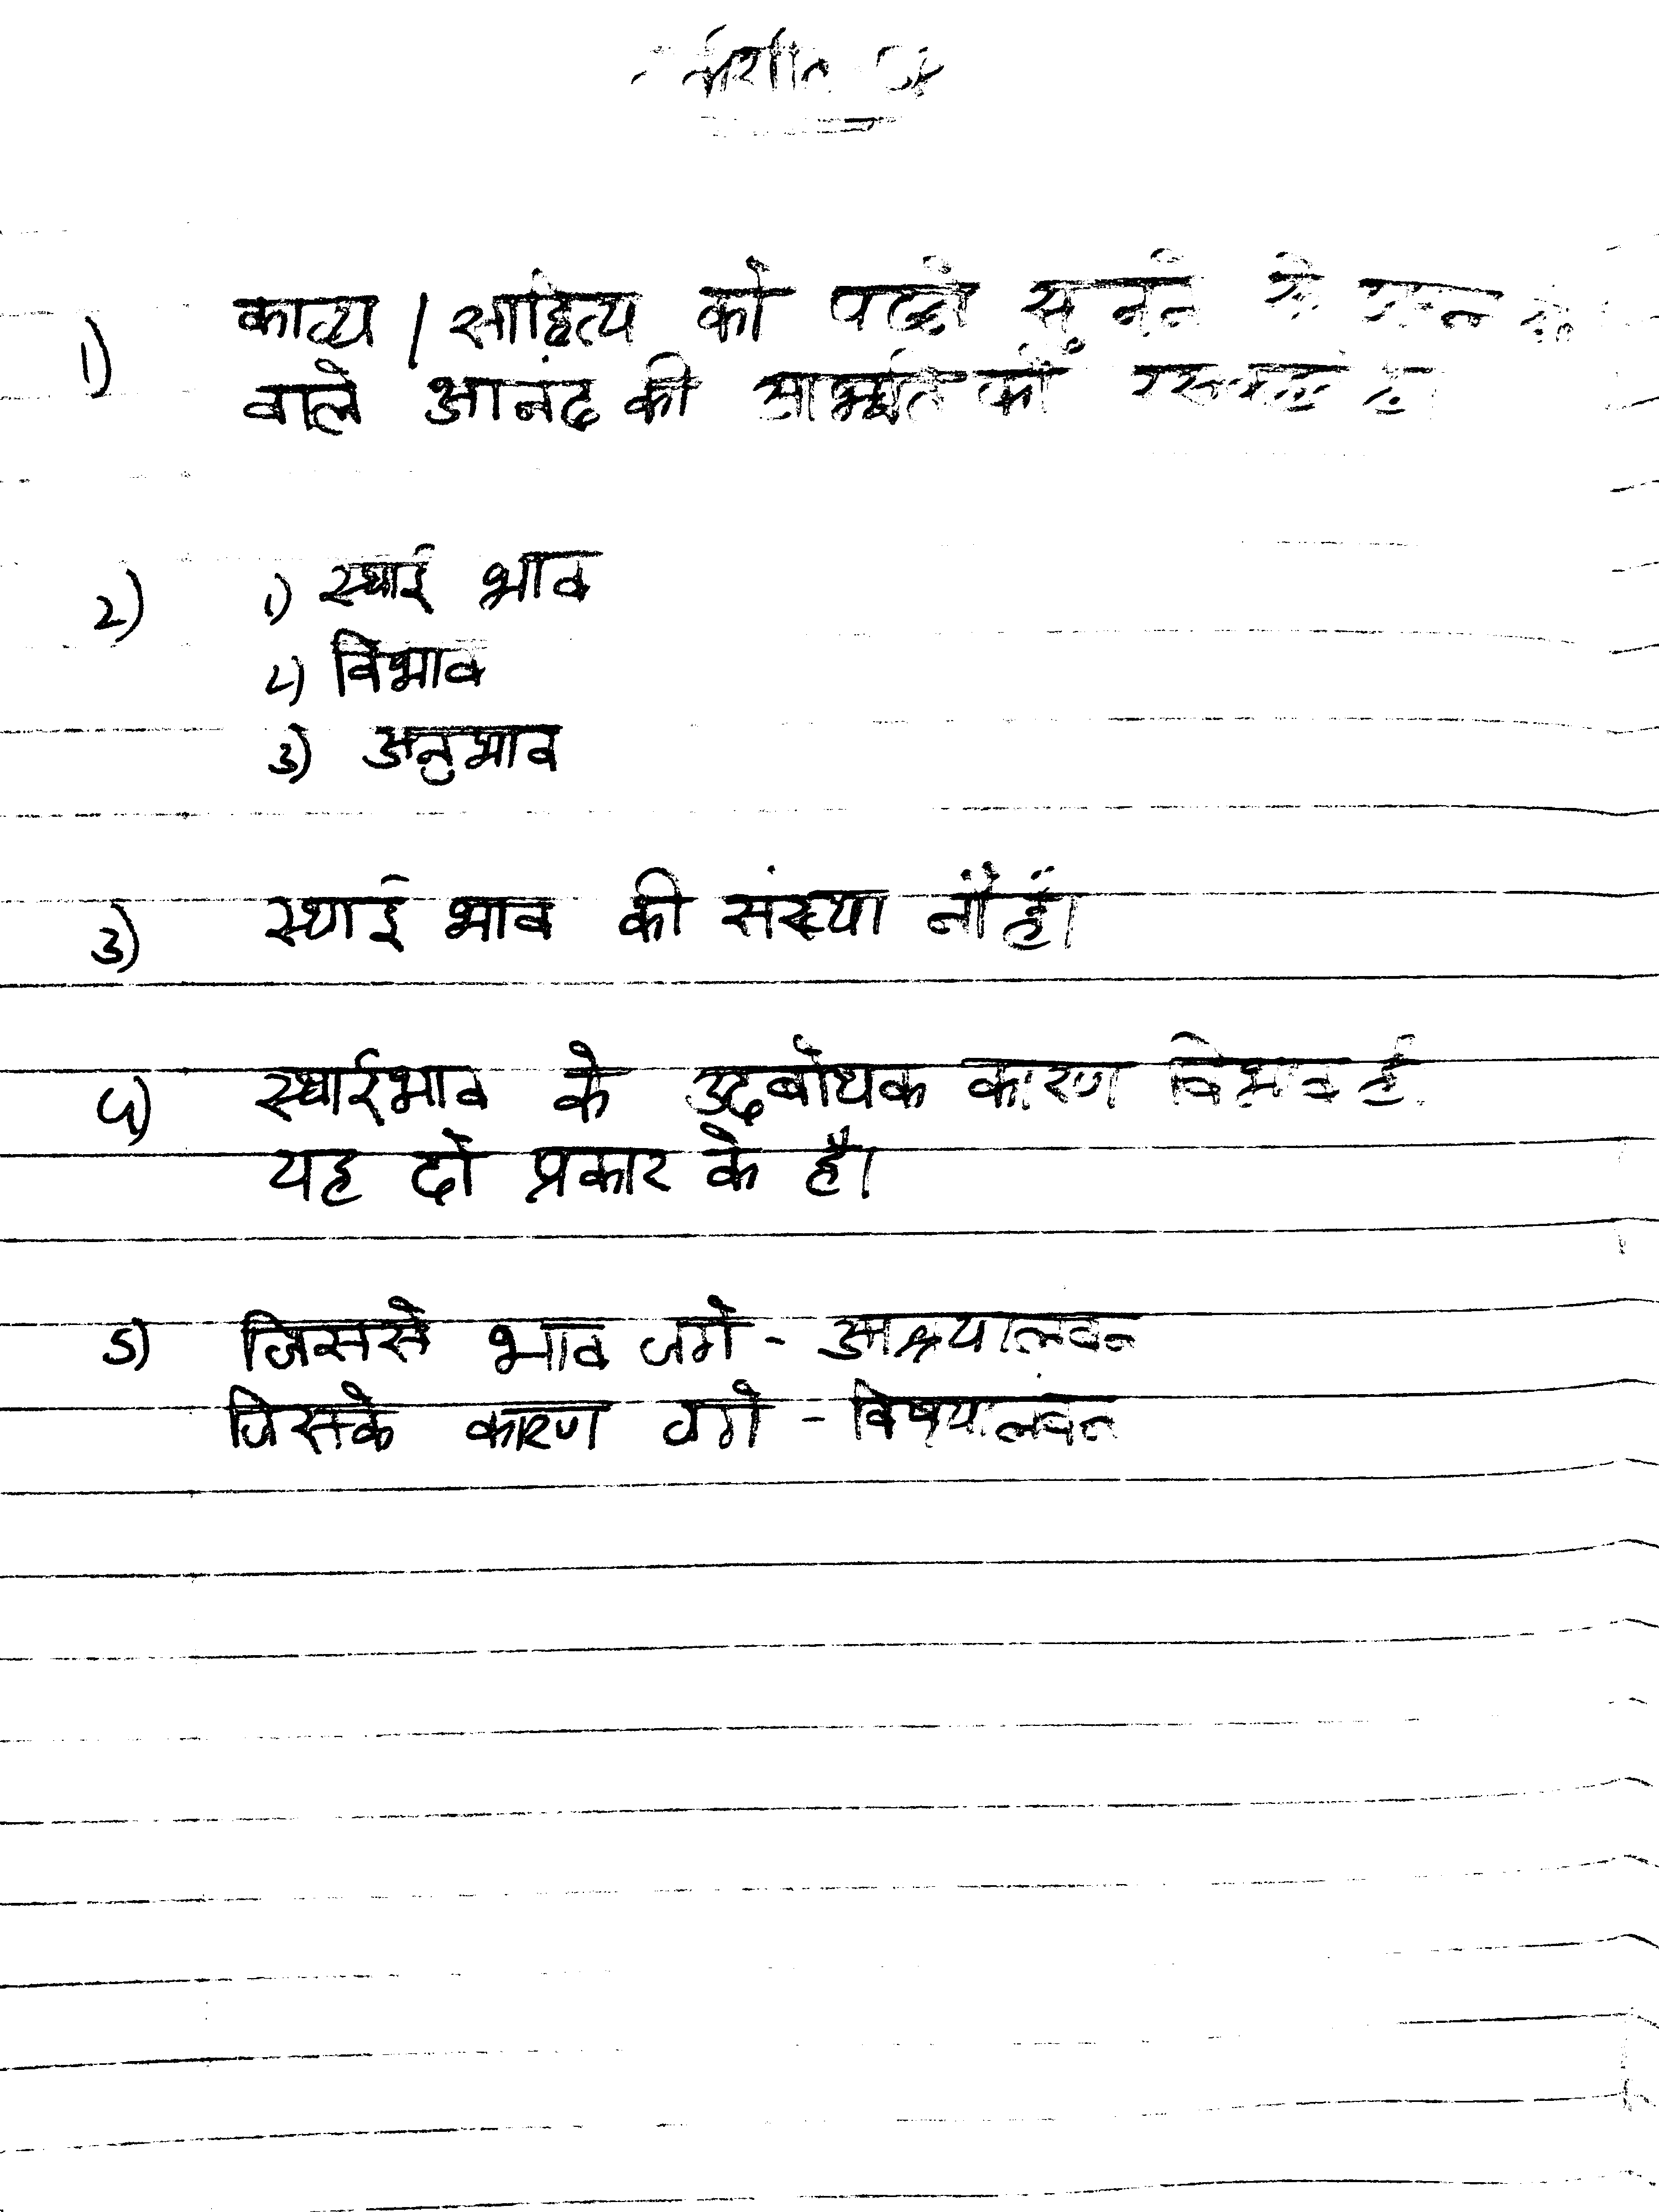 1) काव्य / साहित्य को पढने सुनने से
वाले आनंद की को रस कहते है।
2) 1) स्थाई भाव
2) विभाव
3) अनुभाव
3) स्थाई भाव की संख्या नौं हैं।
4) स्थाईभाव के उदबोधक कारण विभाव है
यह दो प्रकार के है।
5) जिससे भाव जगे - आश्रयालबन
जिसके कारण जगे - विषयालंबन